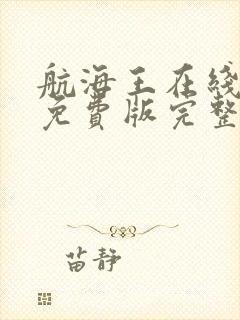 航海王在线
免费版完整
苗静